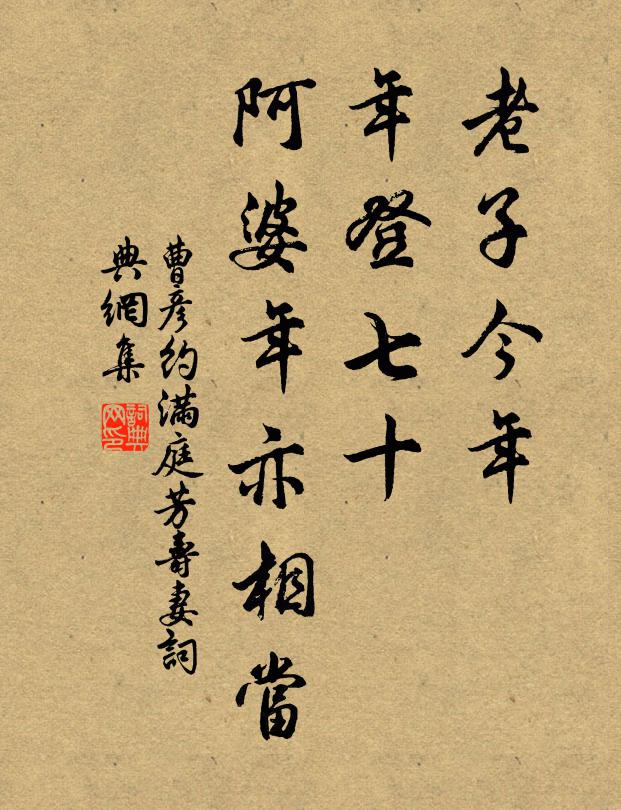 老子今年
年登七十
阿婆年亦相當
曹彥約滿庭芳壽妻詞
典網集
詞典網印